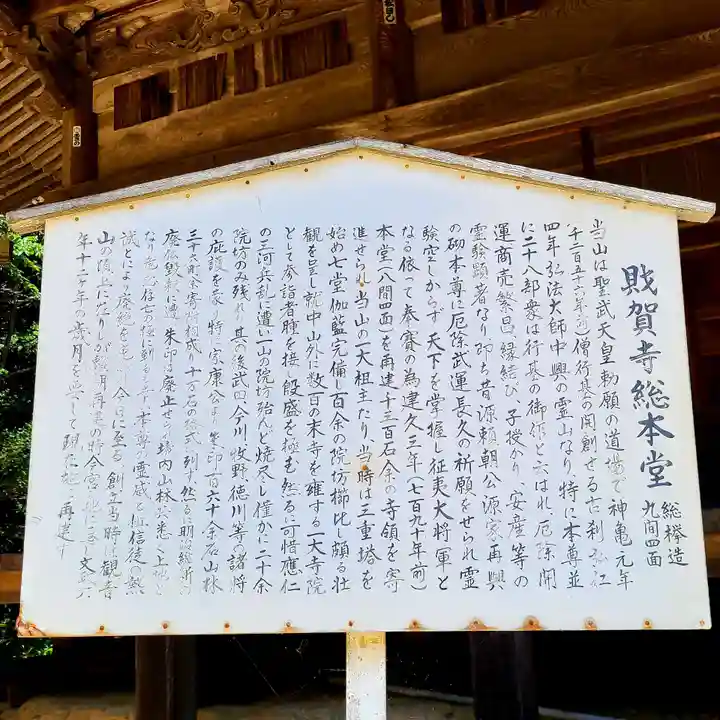 財賀寺総本堂
総欅造
九間四面
当山は聖武天皇勅願の道場で神亀元年
(千二百五十六年前)僧行基の開創せる古刹
四年弘法大師中興の霊山なり、特に本尊並
に二十八部衆は行基の御作と云はれ、厄除開
運商売繁昌縁結び、子授かり、安産等の
霊験顕著なり即ち昔源頼朝公源家再興
の砌本尊に厄除武運長久の祈願をせられ霊
験空しからず天下を掌握し征夷大将軍と
なる依って奉賽の為建久三年(七百九十年前)
本堂(八間四面)を再建千三百石余の寺領を寄
進せられ当山の一大祖主たり当時は三重塔を
始め七堂伽藍完備し百余の院坊櫛比し頗る壮
観を呈し就中山外に数百の末寺を擁する一大寺院
として参詣者踵を接し殷盛を極む然るに可惜応仁
の三河兵乱に遭ひ一山の院坊殆んど焼尽し僅かに二十余
院坊のみ残れり其の後武田今川、牧野、徳川等の諸将
の庇護を蒙り特に家康公より朱印一百六十余石山林
三十六町余寄附相成り十万石の格式に列す然るに明治維新の
廃仏毀釈に遭ひ朱印は廃止せられ境内山林は悉く上地と
なり存亡の極に到る本尊の霊威と担信徒の熱
誠とにより廃絶を今日に至る、創立当時は観音
山の頂上に在りしが数月再業の時今宮の地に文政六
年十二ヶ年の歳月を要して現在地へ再建す